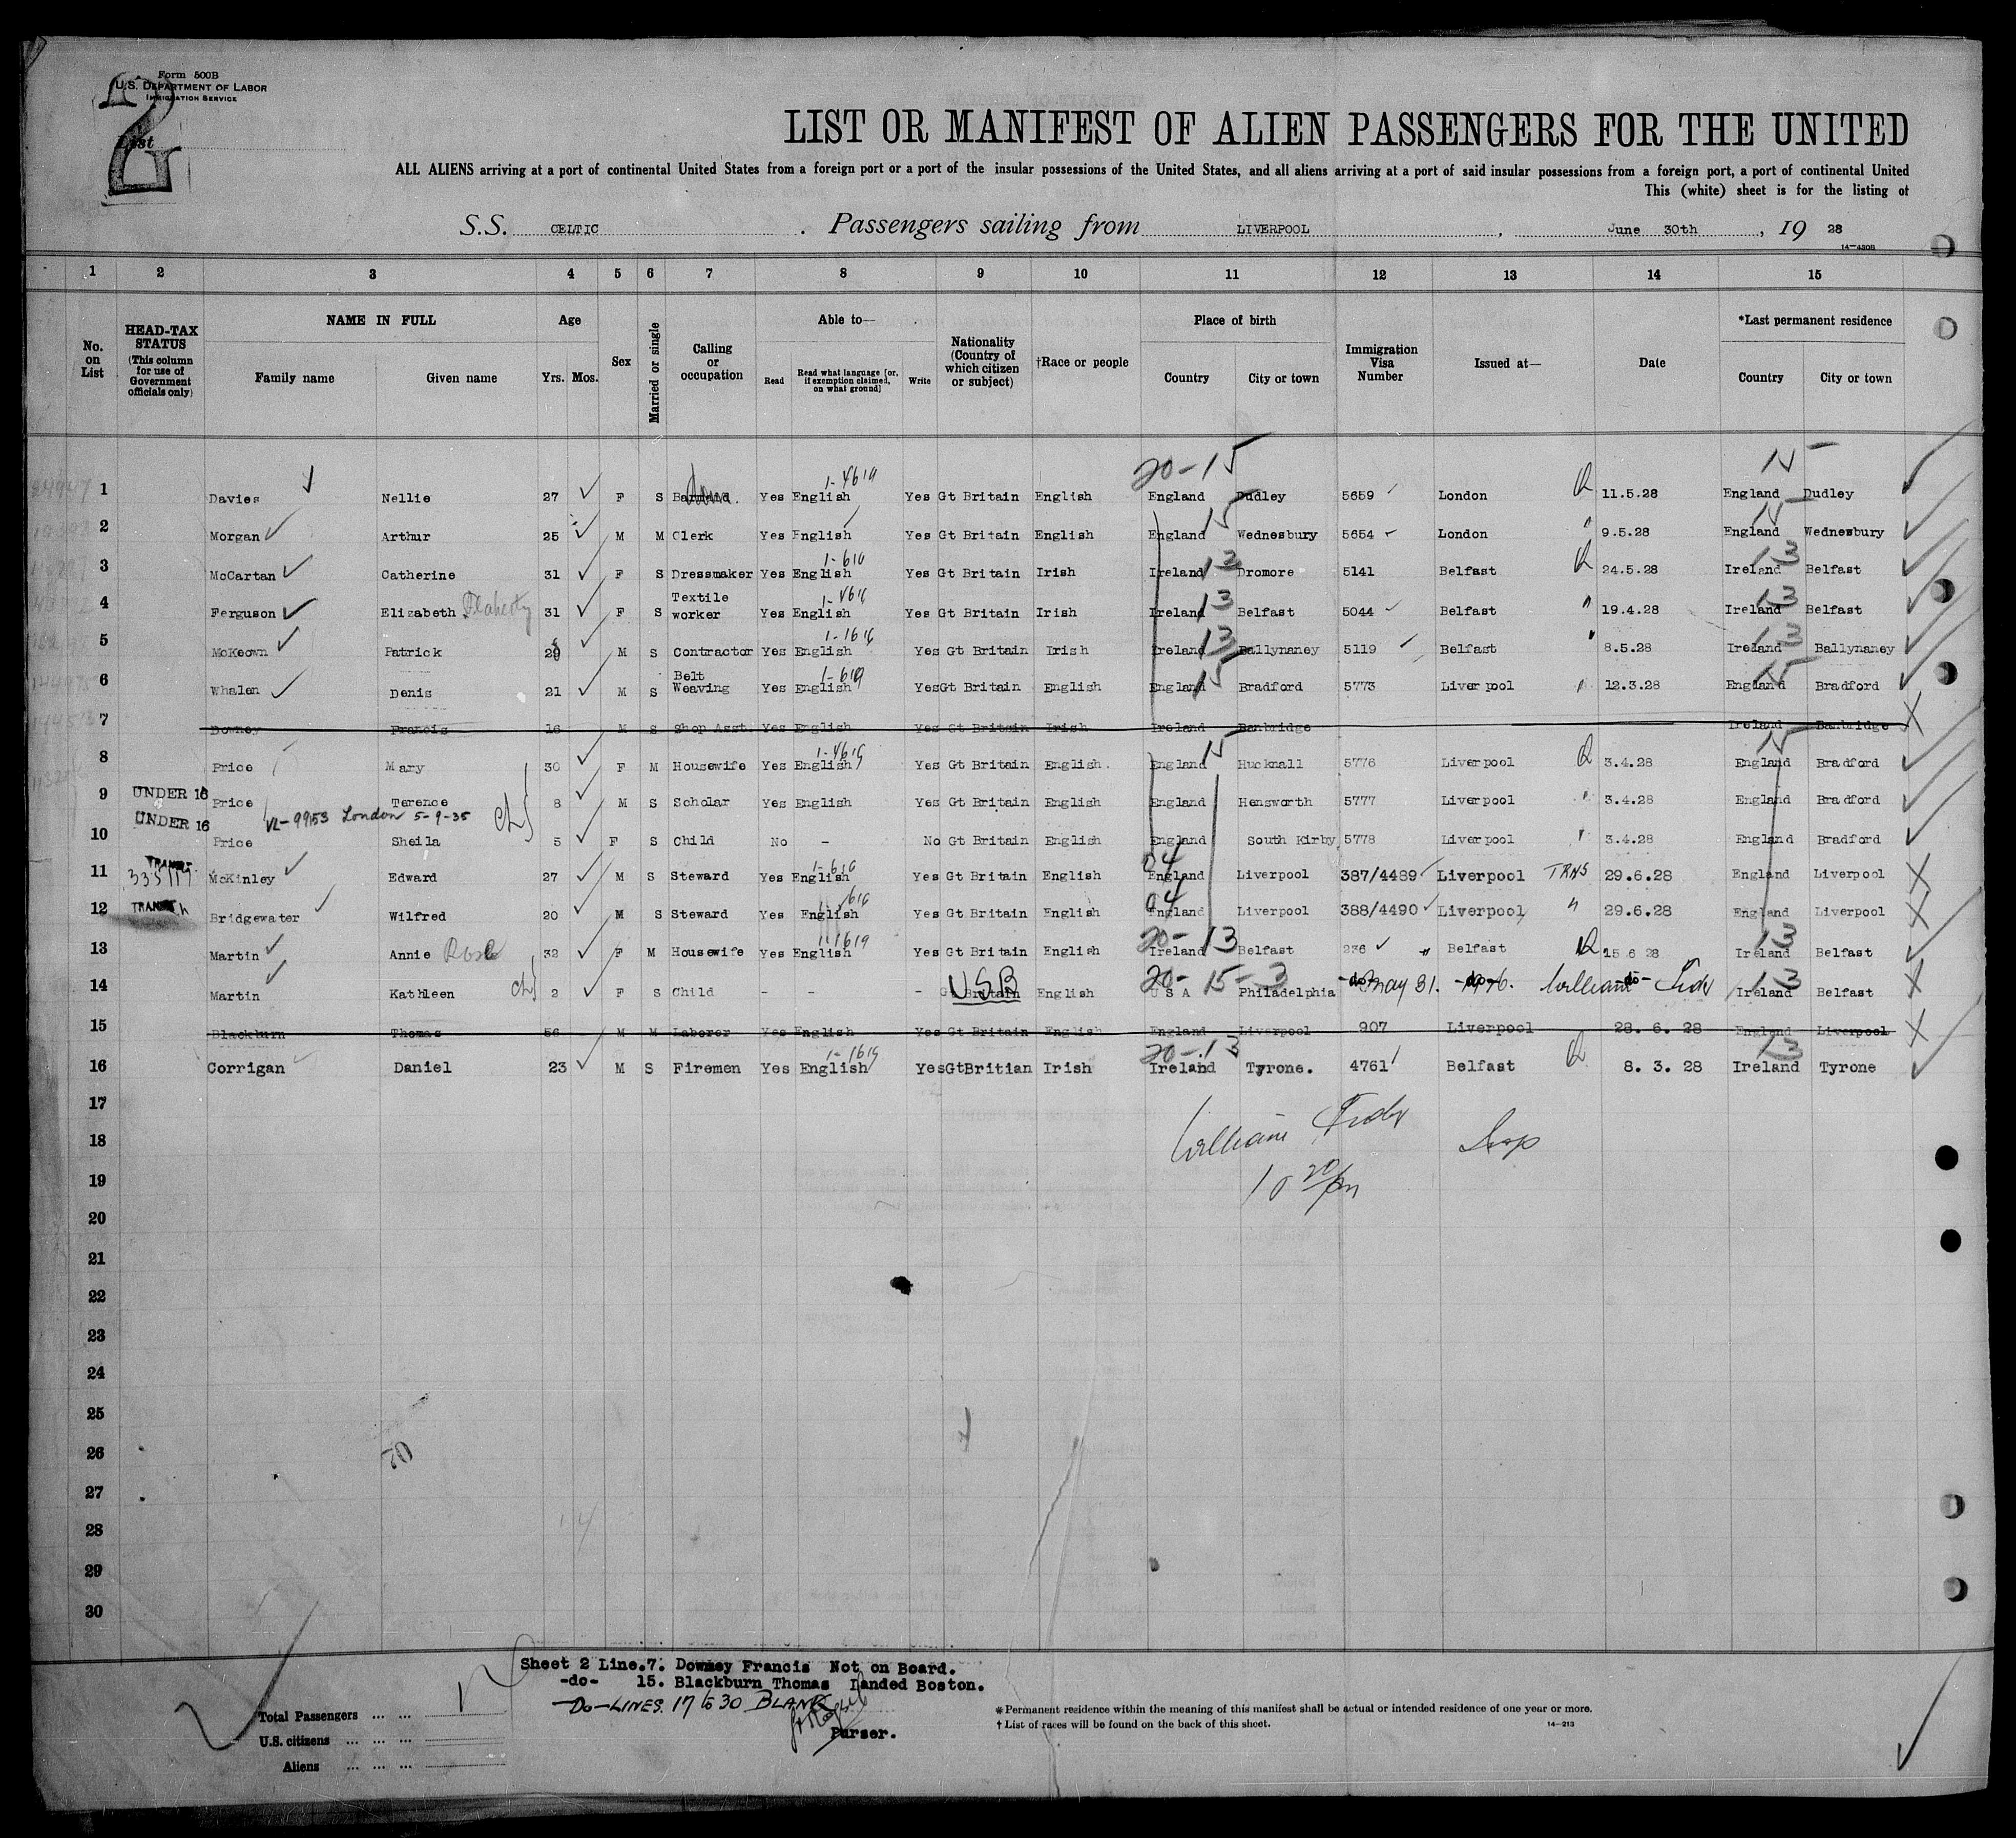 Form 500B
U.S. DEPARTMENT OF LABOR
IMMIGRATION SERVICE
List
2
LIST OR MANIFEST OF ALIEN PASSENGERS FOR THE UNITED
ALL ALIENS arriving at a port of continental United States from a foreign port or a port of the insular possessions of the United States, and all aliens arriving at a port of said insular possessions from a foreign port, a port of continental United
This (white) sheet is for the listing of
S.S. CELTIC. Passengers sailing from LIVERPOOL, June 30th, 19 28
14-430B
1 2 3 4 5 6 7 8 9 10 11 12 13 14 15
No. on List
HEAD-TAX STATUS (This column for use of Government officials only)
NAME IN FULL Family name Given name
Age Yrs. Mos.
Sex
Married or single
Calling or occupation
Able to— Read Read what language [or, if exemption claimed, on what ground] Write
Nationality (Country of which citizen or subject)
†Race or people
Place of birth Country City or town
Immigration Visa Number
Issued at—
Date
*Last permanent residence Country City or town
20-15 15
1 Davies Nellie 27 F S Barmaid Yes English Yes Gt Britain English England Dudley 5659 London 11.5.28 England Dudley
2 Morgan Arthur 25 M M Clerk Yes English Yes Gt Britain English England 15 Wednesbury 5654 London 9.5.28 England 15 Wednesbury
3 McCartan Catherine 31 F S Dressmaker Yes English Yes Gt Britain Irish Ireland 13 Dromore 5141 Belfast 24.5.28 Ireland 13 Belfast
4 Ferguson Elizabeth Flaherty 31 F S Textile worker Yes English Yes Gt Britain Irish Ireland 13 Belfast 5044 Belfast 19.4.28 Ireland 13 Belfast
5 McKeown Patrick 29 M S Contractor Yes English Yes Gt Britain Irish Ireland 13 Ballynaney 5119 Belfast 8.5.28 Ireland 13 Ballynaney
6 Whalen Denis 21 M S Belt Weaving Yes English Yes Gt Britain English England 15 Bradford 5773 Liverpool 12.3.28 England 15 Bradford
7 Downey Francis 16 M S Shop Asst. Yes English Yes Gt Britain Irish Ireland Banbridge Ireland Banbridge
8 Price Mary 30 F M Housewife Yes English Yes Gt Britain English. England 15 Hucknall 5776 Liverpool 3.4.28 England 15 Bradford
9 UNDER 16 Price Terence 8 M S Scholar Yes English Yes Gt Britain English England Hensworth 5777 Liverpool 3.4.28 England Bradford
VL-99153 London 5-9-35
10 UNDER 16 Price Sheila 5 F S Child No - No Gt Britain English England South Kirby 5778 Liverpool 3.4.28 England Bradford
11 McKinley Edward 27 M S Steward Yes English Yes Gt Britain English England Liverpool 387/4489 Liverpool TRNS 29.6.28 England Liverpool
12 Bridgewater Wilfred 20 M S Steward Yes English Yes Gt Britain English England Liverpool 388/4490 Liverpool " 29.6.28 England Liverpool
13 Martin Annie Rose 32 F M Housewife Yes English Yes Gt Britain English 20-13 Ireland Belfast 236 Belfast 15.6 28 Ireland 13 Belfast
14 Martin Kathleen 2 F S Child - - - Gt Britain USB English U S A 20-15-3 Philadelphia -do- May 31. -do- -do- Ireland 13 Belfast
15 Blackburn Thomas 56 M M Laborer Yes English Yes Gt Britain English England Liverpool 907 Liverpool 28. 6. 28 England Liverpool
16 Corrigan Daniel 23 M S Firemen Yes English Yes GtBritian Irish 20-13 Ireland Tyrone. 4761 Belfast 8. 3. 28 Ireland 13 Tyrone
17
18 William Insp
19
20
21
22
23
24
25
26
27
28
29
30
Sheet 2 Line.7. Downey Francis Not on Board.
-do- 15. Blackburn Thomas Landed Boston.
-Do- LINES. 17 to 30 BLANK
Purser.
Total Passengers ... ...
U.S. citizens ... ... ...
Aliens ... ... ...
*Permanent residence within the meaning of this manifest shall be actual or intended residence of one year or more.
† List of races will be found on the back of this sheet. 14-213